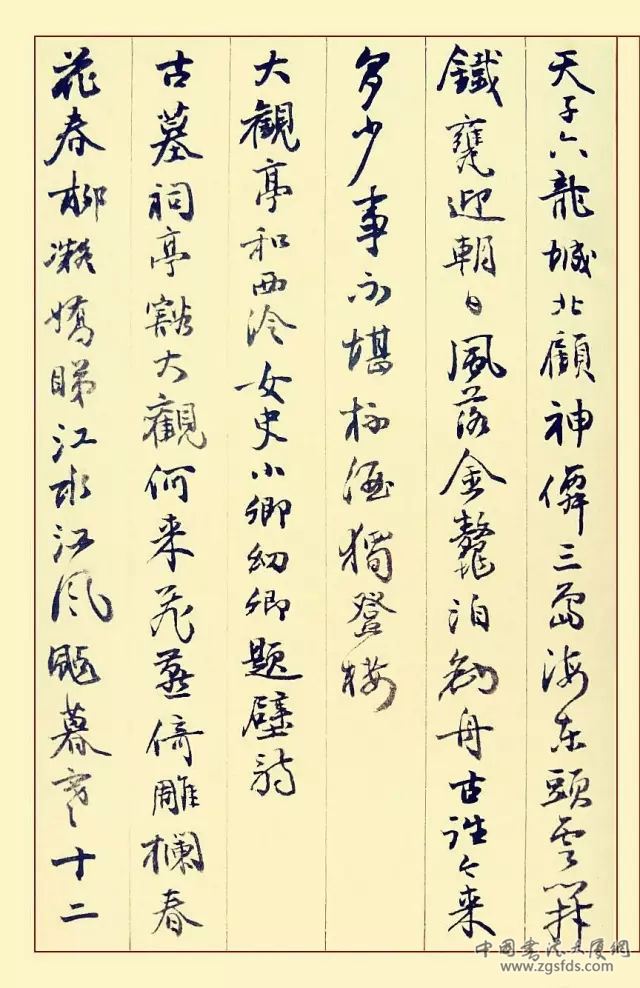 天子六龍城北顧神僊三島海東頭雲開
鐵甕迎朝日風落金鼇泊舟古往今来
多少事不堪酒獨登樓
大觀亭和西泠女史小卿幼卿題壁詩
古墓祠亭豁大觀何来飛燕倚雕欄春
花春柳凝嬌睇江水江风颭暮寒十二
中国書法大厦網
www.zgsfds.com